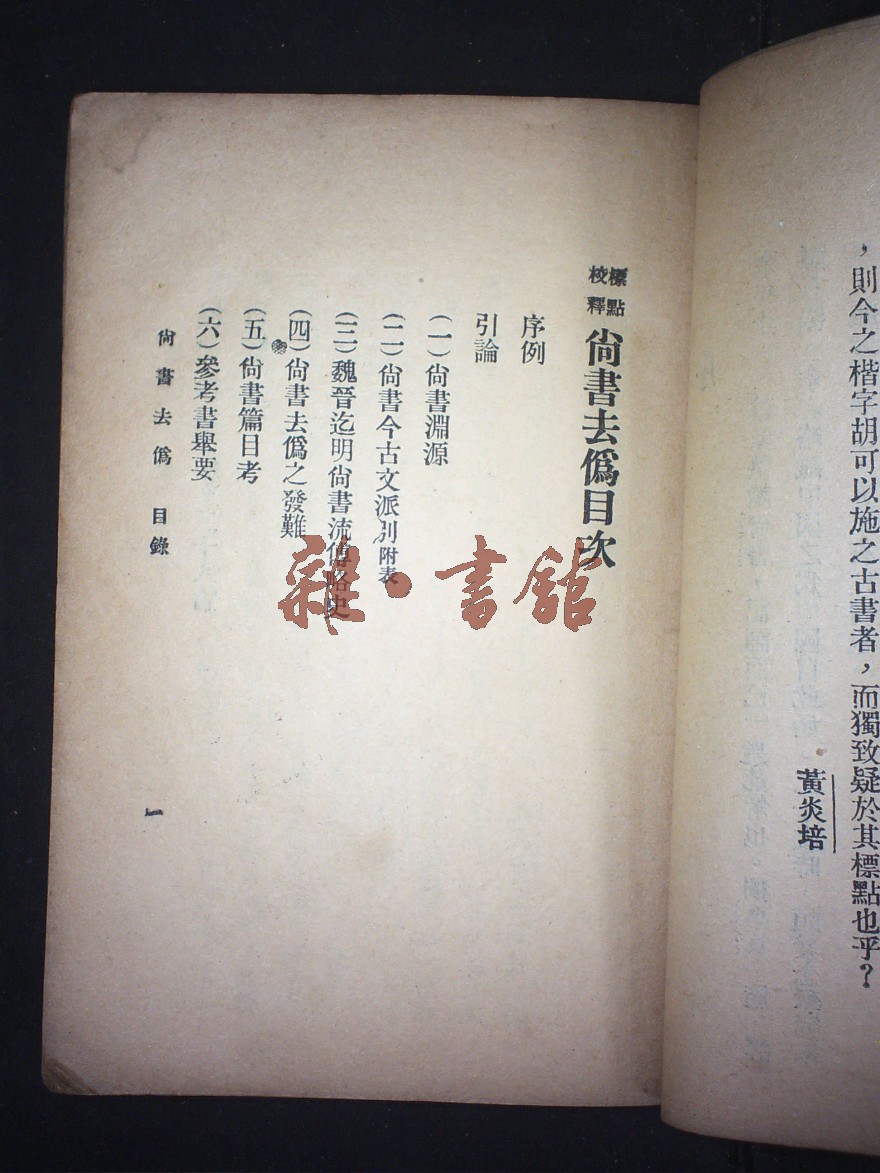 ，則今之楷字胡可以施之古書者，而獨致疑於其標點也乎？
黃炎培
標點校釋 尙書去僞目次
序例
引論
（一）尙書淵源
（二）尙書今古文派別附表
（三）魏晉迄明尙書流傳略史
（四）尙書去僞之發難
（五）尙書篇目考
（六）參考書舉要
尙書去僞 目錄
一
雜·書館